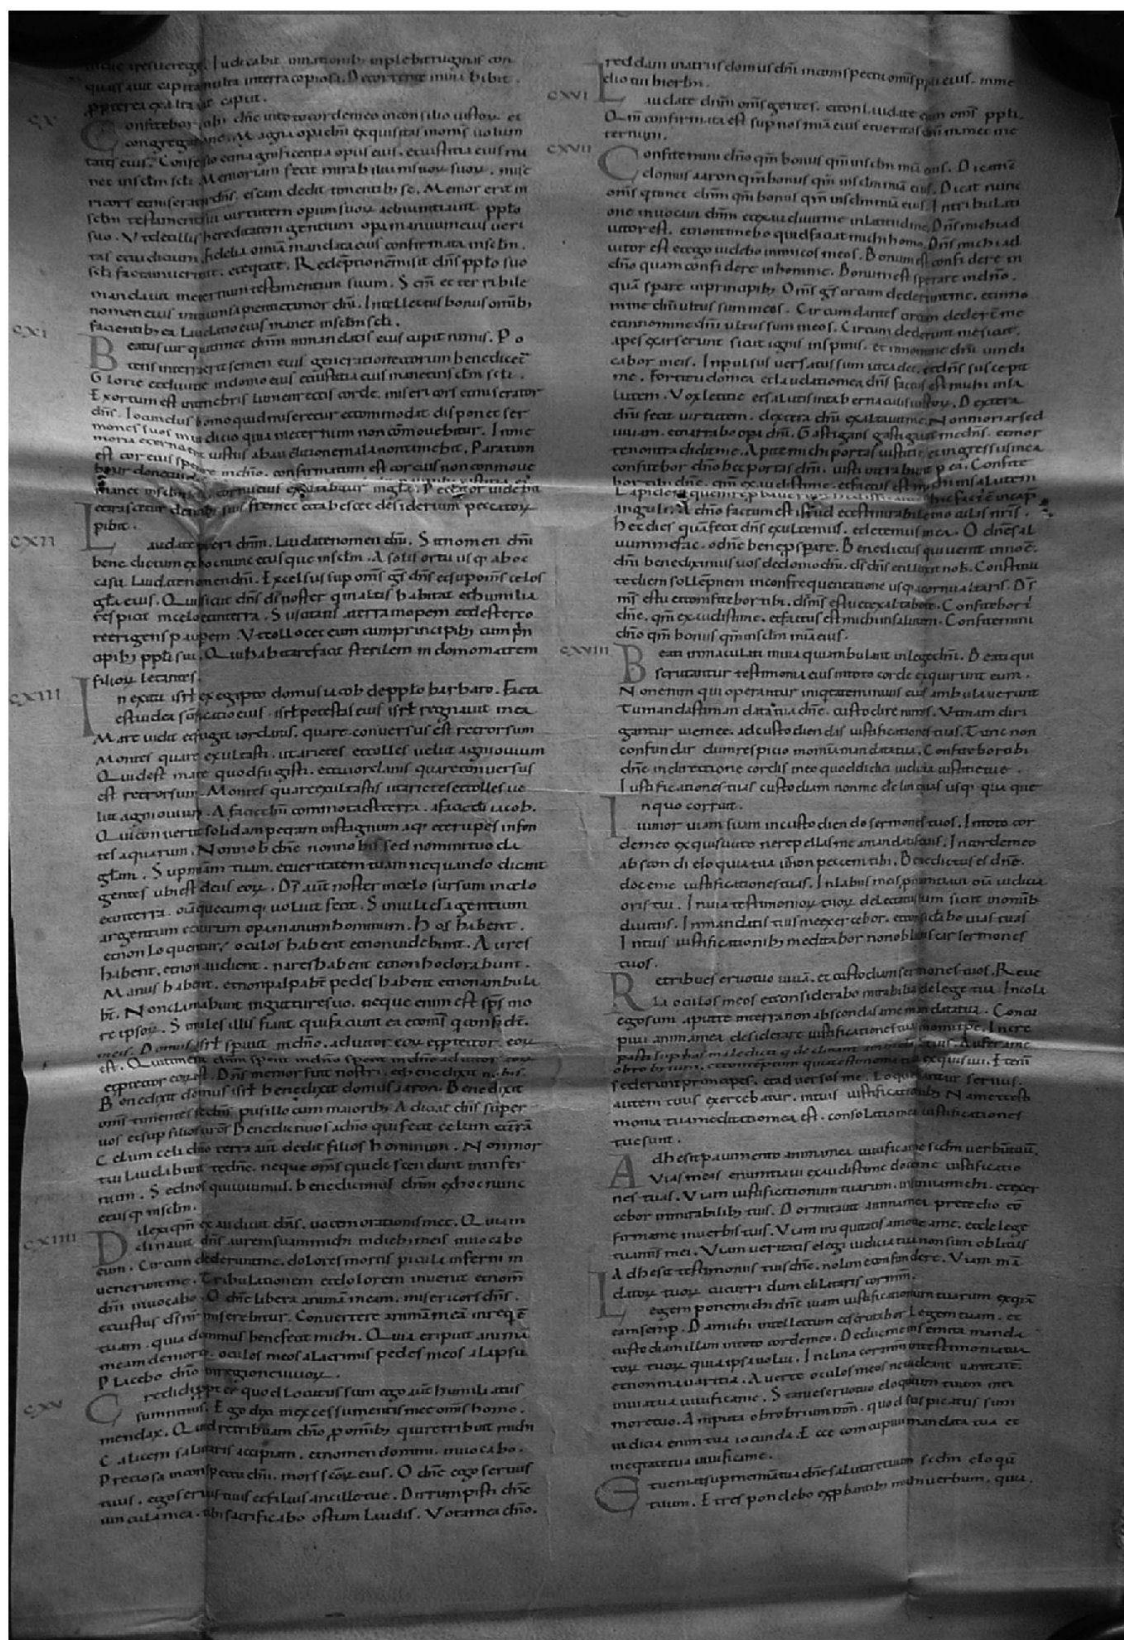 Iudicabit innationib; inplebit ruginas con
quassauit capita multa interra copiosa. Detorrente inuia bibit.
ppterea exaltauit caput.
CX
Confitebor tibi dne intoto corde meo inconsilio iustoꝝ et
congregatione. Magna opa dni exquisita inomis uolun
tates eius. Confessio &magnificentia opus eius. &iustitia eius ma
net inscłm scłi. Memoriam fecit mirabiliū suoꝝ. mise
ricors &miserator dns. escam dedit timentib; se. Memor erit in
scłm testamenti sui uirtutem opum suoꝝ adnuntiauit pplo
suo. Vtdetillis hereditatem gentium opa manuum eius ueri
tas &iudicium. fidelia omia mandata eius confirmata inscłm.
scłi facta inueritate. &eqtate. Redemptionem misit dns pplo suo
mandauit ineternum testamentum suum. Scm et terribile
nomen eius initium sapientie timor dni. Intellectus bonus omib;
facientib; ea Laudatio eius manet inscłm scłi.
CXI
Beatus uir qui timet dnm inmandatis eius cupit nimis. Po
tens interra erit semen eius generatio rectorum benedicet
Glorie &diuitie indomo eius &iustitia eius manet inscłm scłi.
Exortum est intenebris lumen rectis corde. misericors &miserator
dns. Iocundus homo qui miseretur &commodat disponet ser
mones suos iniudicio quia ineternum non cōmouebitur. Inme
moria eterna erit iustus abauditione mala nontimebit. Paratum
est cor eius sperare indno. confirmatum est cor eius non commoue
manet inscłm scłi. cornu eius exaltabitur inglā. Peccator uidebit
&irascetur dentib; suis fremet &tabescet desiderium peccatoꝝ
pibit.
CXII
Laudate pueri dnm. Laudate nomen dni. Sit nomen dni
benedictum exhocnunc &usque inscłm. A solis ortu usq; ad oc
casū. Laudate nomen dni. Excelsus sup oms gs dns & sup oms celos
glā eius. Quis sicut dns ds noster qui inaltis habitat & humilia
respicit incelo &interra. Suscitans aterra inopem & destercore
&erigens paupem. Vtcollocet eum cumprincipib; cum prin
cipib; ppli sui. Qui habitare facit sterilem indomo matrem
filioꝝ letantes.
CXIII
In exitu isrł exegipto domus iacob depplo barbaro. Facta
est iudea scificatio eius. isrł potestas eius isrł regnauit mea
Mare uidit &fugit iordanis. quare conuersus est retrorsum
Montes quare exultasti. ut arietes &colles uelut agni ouium
Quid est mare quod fugisti. &tu iordanis quare conuersus
est retrorsum. Montes quare exultastis ut arietes &colles ue
lut agni ouium. A facie dni commota est terra. afacie di iacob.
Qui conuertit solidam petram instagnum aq; & rupes infon
tes aquarum. Nonnob dne nonnobis sed nomini tuo da
głam. Sup miam tuam. &ueritatem tuam nequando dicant
gentes ubi est deus eoꝝ. Ds aut noster incelo sursum incelo
&interra. omia quecumq; uoluit fecit. Simulacra gentium
argentum &aurum opa manuum hominum. Hos habent.
&non loquentur. oculos habent &nonuidebunt. Aures
habent. &non audient. nares habent &non hodorabunt.
Manus habent. &nonpalpabt pedes habent &non ambula
bt. Nonclamabunt ingutture suo. neque enim est sps ino
re ipsoꝝ. Similes illis fiant qui faciunt ea &oms qui confidt.
ineis. Domus isrł sperauit indno. adiutor eoꝝ &ptector eoꝝ
est. Qui timent dnm sperent indno adiutor eoꝝ
&ptector eoꝝ est. Dns memor fuit nostri. &benedixit nobis.
Benedixit domui isrł benedixit domui aaron. Benedixit
oms timentes se dns. pusillos cum maiorib; Adiciat dns super
uos &sup filios uros Benedicti uos adno qui fecit celum &terrā
Celum celi dno terrā aut dedit filiis hominum. Non mor
tui laudabunt te dne. neque oms qui descendunt ininfer
num. Sed nos qui uiuimus. benedicimus dnm exhocnunc
&usq; inscłm.
CXIIII
Dilexi qm exaudiuit dns. uocem orationis mee. Quia in
clinauit dns aurem suam michi indieb; meis inuocabo
eum. Circumdederuntme. dolores mortis picula inferni in
ueneruntme. Tribulationem &dolorem inueni &nom
dni inuocabo. O dne libera animā meam. misericors dns.
&iustus ds nr miserebitur. Conuertere animā mea inrequiē
tuam. quia dominus benefecit michi. Quia eripuit animā
meam demorte. oculos meos alacrimis pedes meos alapsu
Placebo dno inregione uiuoꝝ.
CXV
Credidi ppter quod locutus sum ego aut humiliatus
sum nimis. Ego dixi inexcessu mentis mee omis homo
mendax. Quid retribuam dno pomib; qui retribuit michi
Calicem salutaris accipiam. &nomen domini. inuocabo.
Preciosa inconspectu dni. mors scoꝝ eius. O dne ego seruus
tuus. ego seruus tuus &filius ancille tue. Dirrumpisti dne
uincula mea. tibi sacrificabo ostium laudis. Vota mea dno.
reddam inatriis domus dni inconspectu omis ppli eius. inme
dio tui hierlm.
CXVI
Laudate dnm oms gentes. &conlaudate eum oms ppli.
Qm confirmata est sup nos mia eius &ueritas dni manet ine
ternum.
CXVII
Confitemini dno qm bonus qm inscłm mia eius. Dicat nc
domus aaron qm bonus qm inscłm mia eius. Dicat nunc
oms qui timet dnm qm bonus qm inscłm mia eius. Intribulati
one inuocaui dnm &exaudiuitme inlatitudine. Dns michi ad
iutor est. &nontimebo quid faciat michi homo. Dns michi ad
iutor est &ego uidebo inimicos meos. Bonum est confidere in
dno quam confidere inhomine. Bonum est sperare indno.
quā sperare inprincipib; Oms gs circum dederuntme. &inno
mine dni ultus sum in eos. Circum dantes circum dederunt me
&innomine dni ultus sum in eos. Circum dederunt me sicut
apes &exarserunt sicut ignis inspinis. et innomine dni uindi
cabor ineis. Inpulsus uersatus sum utcader. &dns suscepit
me. Fortitudo mea &laudatio mea dns factus est michi insa
lutem. Vox letitie &salutis intabernaculis iustoꝝ. Dextera
dni fecit uirtutem. dextera dni exaltauitme. Non moriar sed
uiuam. &narrabo opa dni. Castigans castigauit me dns. &mor
tenontradidit me. Aperite michi portas iustitie &ingressus in ea
confitebor dno hec porta dni. iusti intrabunt p ea. Confite
bor tibi dne. qm exaudistime. &factus est michi insalutem
Lapidem quem reprobauerunt edificantes hic fact est incaput
anguli. A dno factum est istud &est mirabile inoculis nris.
Hec dies quā fecit dns exultemus. &letemur inea. O dne sal
uum mefac. odne bene prosperare. Benedictus quiuenit innoē.
dni benediximus uos dedomo dni. ds dns &illuxit nob. Constitui
tediem sollepnem inconfrequentatione usq; cornu altaris. Ds
ms estu &confitebor tibi. ds ms estu &exaltabote. Confitebor t
dne. qm exaudistime. &factus est michi insalutem. Confitemini
dno qm bonus qm inscłm mia eius.
CXVIII
Beati inmaculati inuia qui ambulant inlege dni. Beati qui
scrutantur testimonia eius intoto corde exquirunt eum.
Non enim qui operantur iniqtatem inuiis eius ambulauerunt
Tu mandasti mandata tua dne. custodire nimis. Vtinam diri
gantur uie mee. ad custodiendas iustificationes tuas. Tunc non
confundar dum respicio inomia mandata tua. Confitebor tibi
dne indirectione cordis meo quod didici iudicia iustitie tue.
Iustificationes tuas custodiam non me delinquas usq; qua que
nquo corrint.
Iunior uiam suam incustodiendo sermones tuos. Intoto cor
demeo exquisiuite nerepellasme amandatis tuis. Incordemeo
abscondi eloquia tua ut non peccem tibi. Benedictus es dne.
doceme iustificationes tuas. Inlabiis meis pnuntiaui omia iudicia
oris tui. Inuia testimonioꝝ tuoꝝ delectatus sum sicut inomnib;
diuitiis. Inmandatis tuis me exercebor. &considerabo uias tuas
Intuis iustificationib; meditabor non obliuiscar sermones
tuos.
Retribue seruo tuo uiuā. et custodiam sermones tuos. Reue
la oculos meos &considerabo mirabilia delege tua. Incola
ego sum aput te interra non abscondas ame mandata tua. Concu
piuit anima mea desiderare iustificationes tuas inomi tpe. Incre
pasti superbos maledicti qui declinant amandatis tuis. Aufer ame
obrobrium. &contemptum quia testimonia tua exquisiui. Etenim
sederunt principes. &aduersos me. Loquebantur seruus.
autem tuus exercebatur. intuis iustificationib; Nam &testi
monia tua meditatio mea est. consolatio mea iustificationes
tue sunt.
Adhesit pauimento anima mea uiuificame scdm uerbū tuū.
Vias meas enuntiaui exaudistime doceme iustificatio
nes tuas. Viam iustificationum tuarum. instrue michi. &exer
cebor inmirabilib; tuis. Dormitauit anima mea pre tedio con
firmame inuerbis tuis. Viam iniquitatis amoue ame. &delege
tua mis mei. Viam ueritatis elegi iudicia tua non sum oblitus
Adhesi testimoniis tuis dne. noli me confundere. Viam mā
datoꝝ tuoꝝ cucurri dum dilatasti cor mm.
Legem pone michi dne uiam iustificationum tuarum exqrā
eam semp. Da michi intellectum &scrutabor legem tuam. et
custodiam illam intoto corde meo. Deduc me insemita manda
toꝝ tuoꝝ quia ipsa uolui. Inclina cor mm intestimonia tua
&non inauaritia. Auerte oculos meos neuideant uanitatē.
inuia tua uiuificame. Statue seruo tuo eloquium tuum inti
more tuo. Amputa obrobrium mm. quod suspicatus sum
iudicia enim tua iocunda. Ecce concupiui mandata tua et
ineqtate tua uiuificame.
Et ueniat supme mia tua dne salutare tuum scdm eloqū
tuum. Et respondebo exprobrantib; michi uerbum. quia.